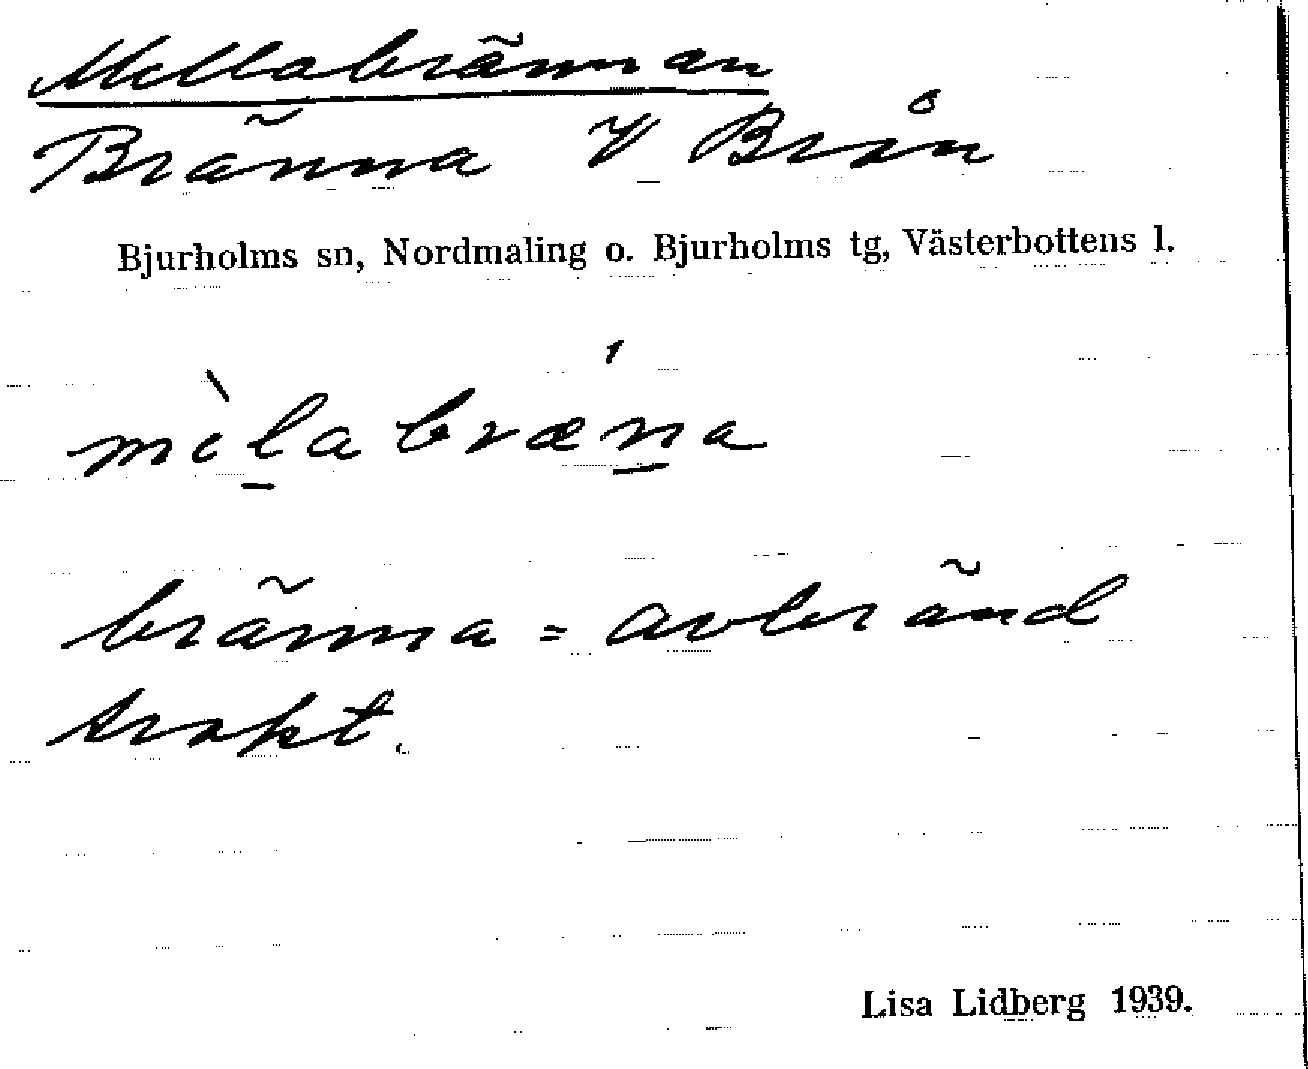 Mellabrännan
Bränna V Brån
Bjurholms sn, Nordmaling o. Bjurholms tg, Västerbottens l.
mèl̠abræń̠a
bränna = avbränd
trakt.
Lisa Lidberg 1939.